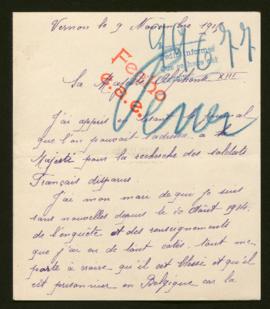 Vernon le 9 Novembre 191
97-77
Fecho
e.a.e.
Sa Majesté Alphonse XIII
J'ai appris
que l'on pouvait s'adresser à
Majesté pour la recherche des soldats
Français disparus.
J'ai mon mari de qui je suis
sans nouvelles depuis le 20 Août 1914.
de l'enquête et des renseignements
que j'ai eu de tout côtés, tout me
porte à croire qu'il est blessé et qu'il
est prisonnier en Belgique car la